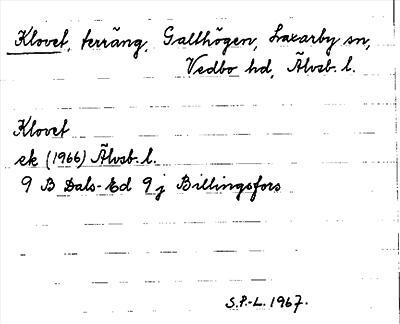 Klovet, terräng, Gallhögen, Laxarby sn,
Vedbo hd, Älvsb. l.
Klovet
ek (1966) Älvsb. l.
9 B Dals-Ed 9 j Billingsfors
S.P.-L. 1967.